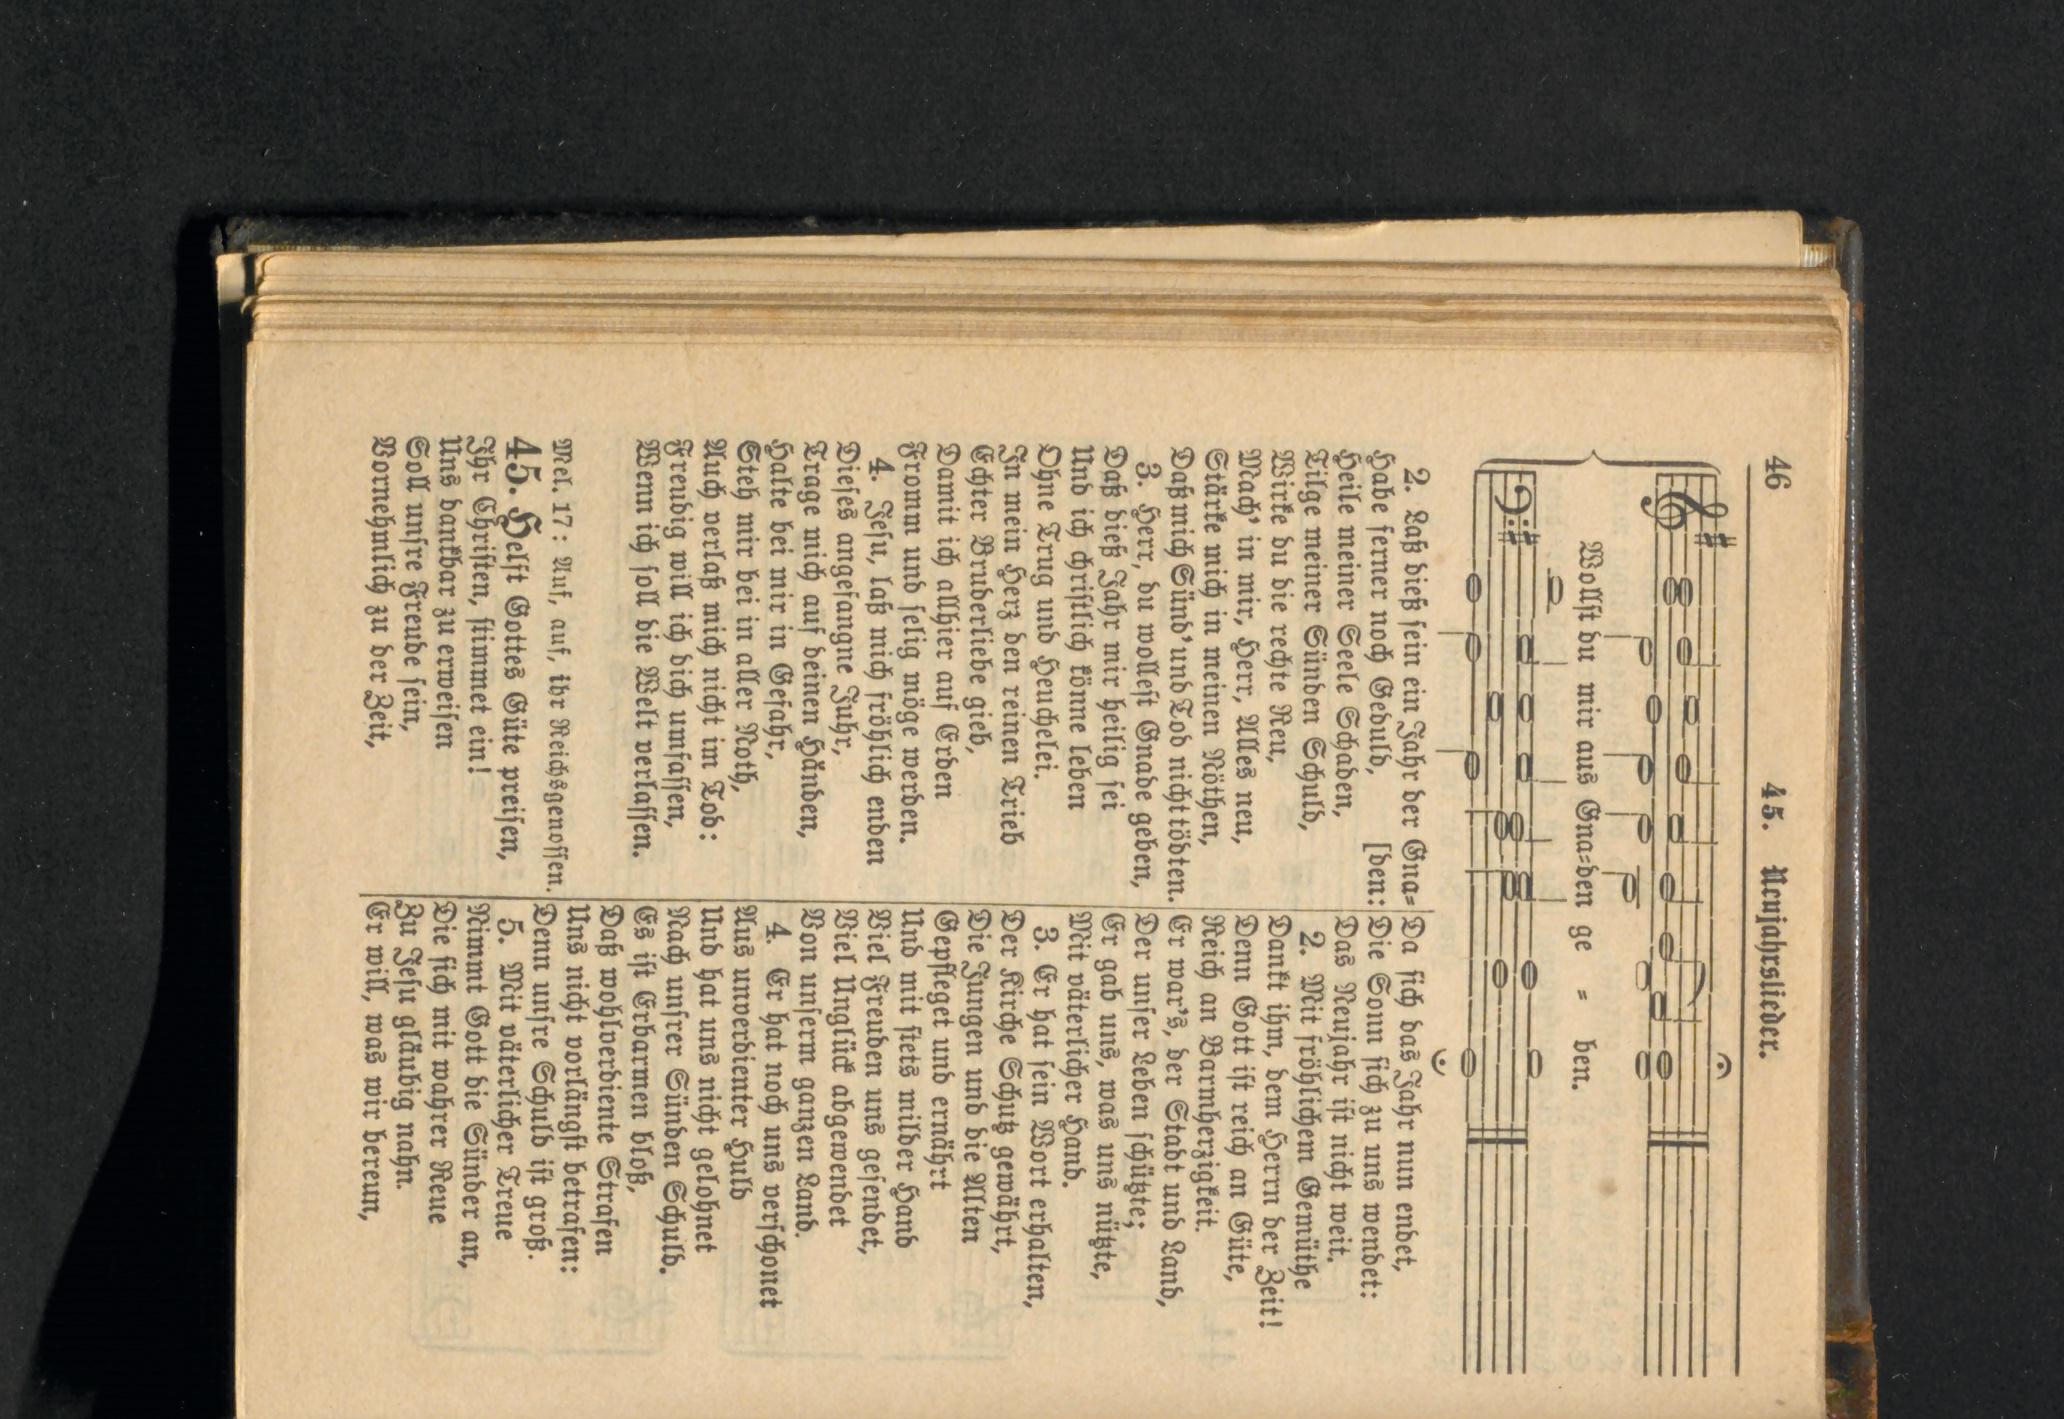 46 45. Neujahrslieder.
Wollst du mir aus Gna=den ge = ben.
2. Laß dieß sein ein Jahr der Gna=
[den:
Habe ferner noch Geduld,
Heile meiner Seele Schaden,
Tilge meiner Sünden Schuld,
Wirke du die rechte Reu,
Mach' in mir, Herr, Alles neu,
Stärke mich in meinen Nöthen,
Daß mich Sünd' und Tod nicht tödten.
3. Herr, du wollest Gnade geben,
Daß dieß Jahr mir heilig sei
Und ich christlich könne leben
Ohne Trug und Heuchelei.
In mein Herz den reinen Trieb
Echter Bruderliebe gieb,
Damit ich allhier auf Erden
Fromm und selig möge werden.
4. Jesu, laß mich fröhlich enden
Dieses angefangne Jahr,
Trage mich auf deinen Händen,
Halte bei mir in Gefahr,
Steh mir bei in aller Noth,
Auch verlaß mich nicht im Tod:
Freudig will ich dich umfassen,
Wenn ich soll die Welt verlassen.
Mel. 17: Auf, auf, ihr Reichsgenossen.
45. Helft Gottes Güte preisen,
Ihr Christen, stimmet ein!
Uns dankbar zu erweisen
Soll unsre Freude sein,
Vornehmlich zu der Zeit,
Da sich das Jahr nun endet,
Die Sonn sich zu uns wendet:
Das Neujahr ist nicht weit.
2. Mit fröhlichem Gemüthe
Dankt ihm, dem Herrn der Zeit!
Denn Gott ist reich an Güte,
Reich an Barmherzigkeit.
Er war's, der Stadt und Land,
Der unser Leben schützte;
Er gab uns, was uns nützte,
Mit väterlicher Hand.
3. Er hat sein Wort erhalten,
Der Kirche Schutz gewährt,
Die Jungen und die Alten
Gepfleget und ernährt
Und mit stets milder Hand
Viel Freuden uns gesendet,
Viel Unglück abgewendet
Von unserm ganzen Land.
4. Er hat noch uns verschonet
Aus unverdienter Huld
Und hat uns nicht gelohnet
Nach unsrer Sünden Schuld.
Es ist Erbarmen bloß,
Daß wohlverdiente Strafen
Uns nicht vorlängst betrafen:
Denn unsre Schuld ist groß.
5. Mit väterlicher Treue
Nimmt Gott die Sünder an,
Die sich mit wahrer Reue
Zu Jesu gläubig nahn.
Er will, was wir bereun,